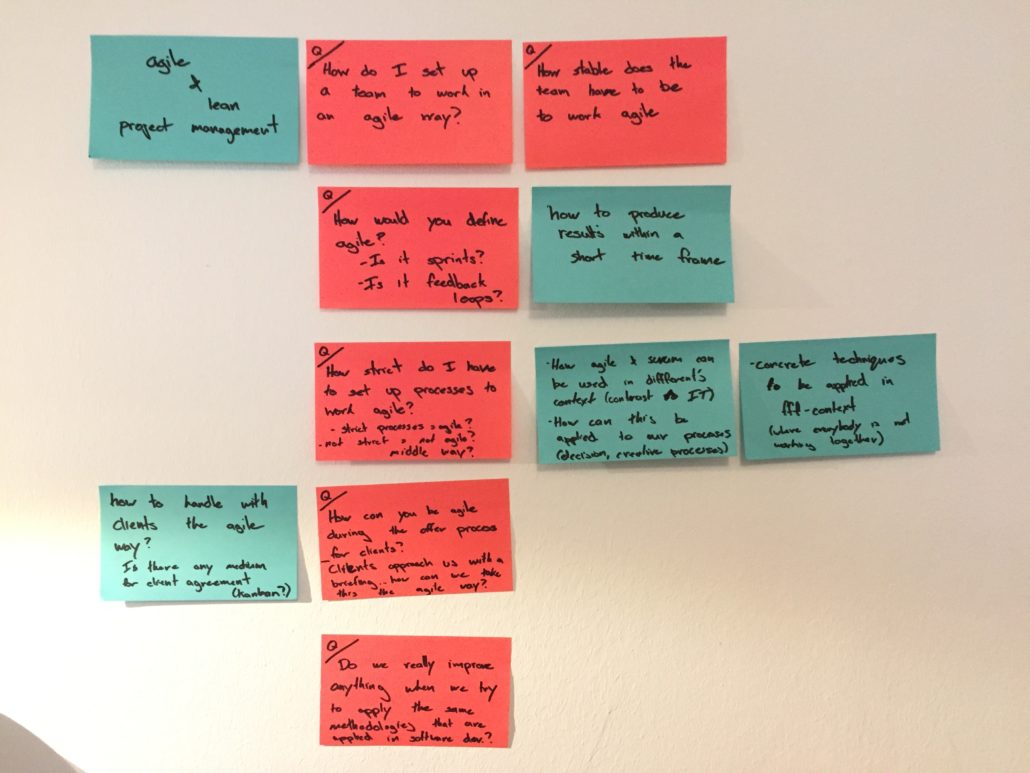 agile
&
lean
project management
Q/
How do I set up
a team to work in
an agile way?
Q/
How stable does the
team have to be
to work agile
Q/
How would you define
agile?
- Is it sprints?
- Is it feedback
loops?
how to produce
results within a
short time frame
Q/
How strict do I have
to set up processes to
work agile?
- strict processes = agile?
- not strict = not agile?
middle way?
- How agile & scrum can
be used in different
context (contrast to IT)
- How can this be
applied to our processes
(decision, creative processes)
- concrete techniques
to be applied in
fff-context
(where everybody is not
working together)
how to handle with
clients the agile
way?
Is there any
for client agreement
(Kanban?)
Q/
How can you be agile
during the offer process
for clients?
- Clients approach us with a
briefing... how can we take
this the agile way?
Q/
Do we really improve
anything when we try
to apply the same
methodologies that are
applied in software dev.?